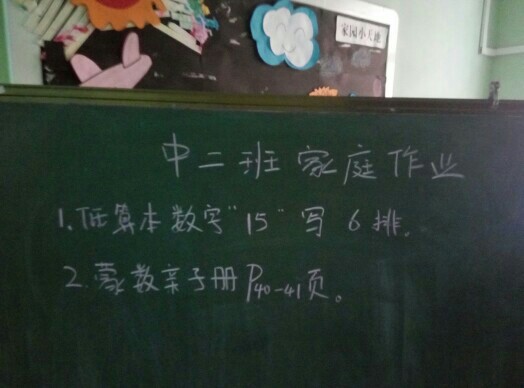 家园小天地
中二班家庭作业
1.任算本数字"15"写6排.
2.蒙数亲子册P40-41页。